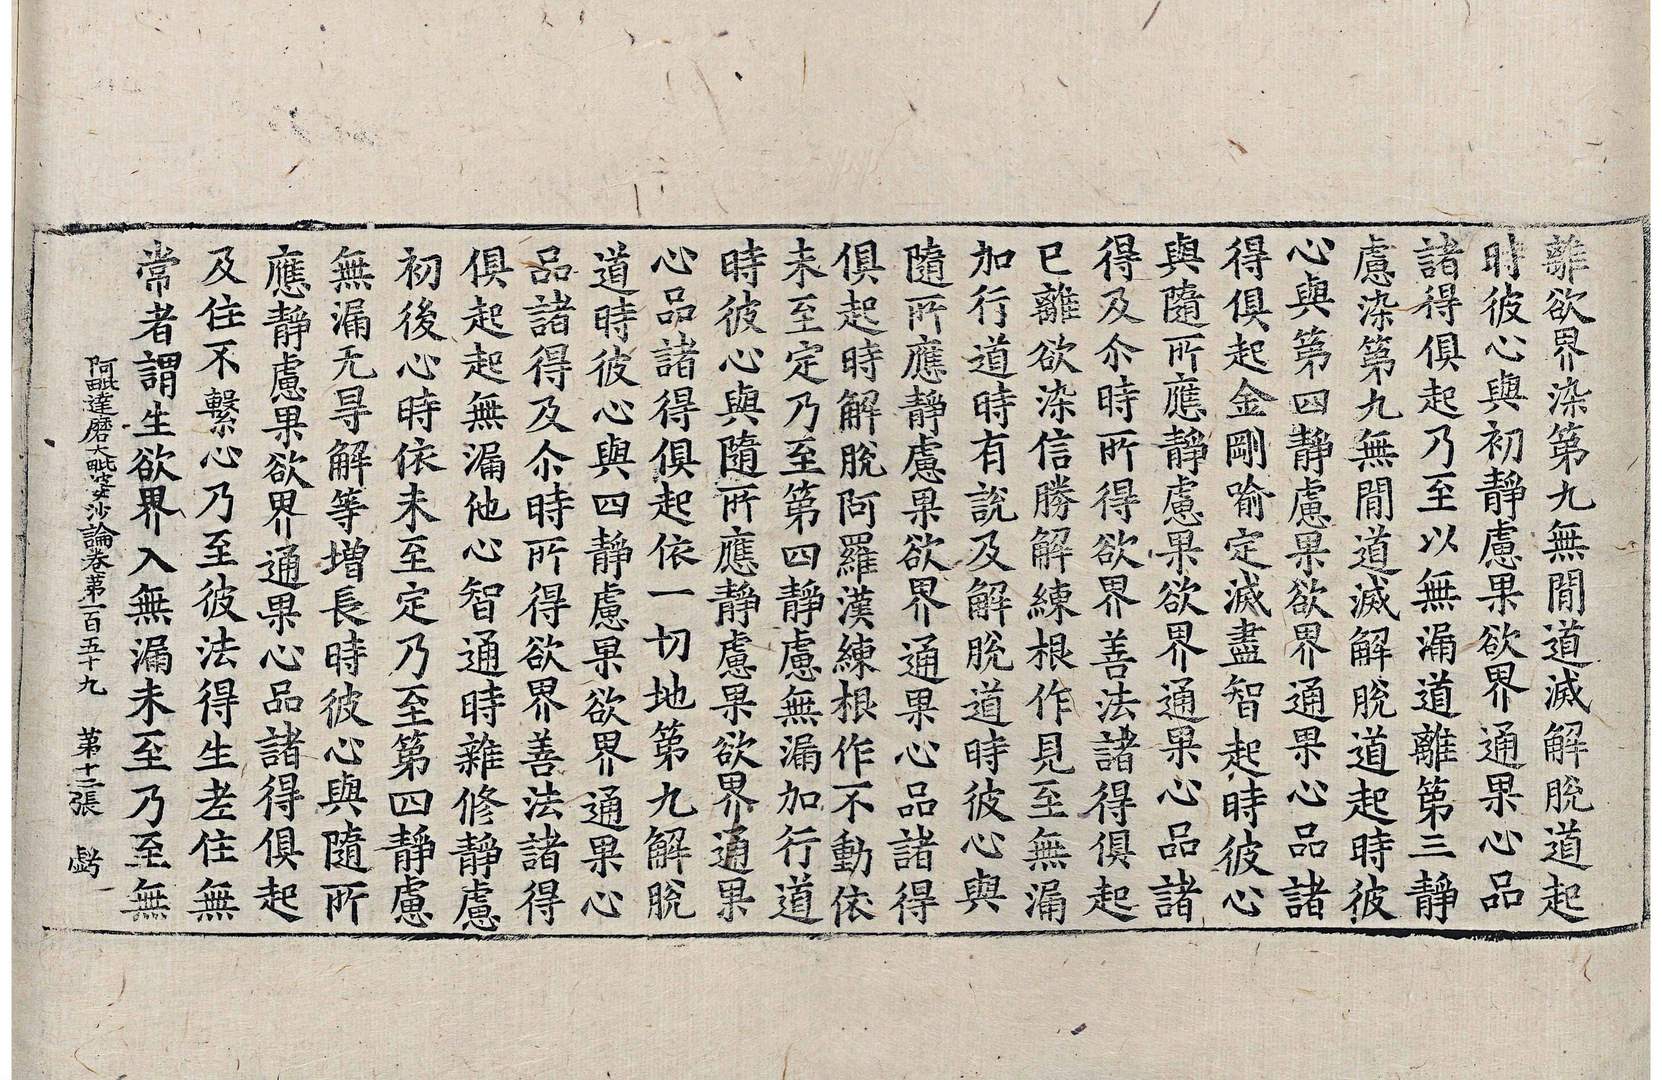 離欲界染第九無閒道滅解脫道起
時彼心與初靜慮果欲界通果心品
諸得俱起乃至以無漏道離第三靜
慮染第九無閒道滅解脫道起時彼
心與第四靜慮果欲界通果心品諸
得俱起金剛喻定滅盡智起時彼心
與隨所應靜慮果欲界通果心品諸
得及尒時所得欲界善法諸得俱起
已離欲染信勝解練根作見至無漏
加行道時有說及解脫道時彼心與
隨所應靜慮果欲界通果心品諸得
俱起時解脫阿羅漢練根作不動依
未至定乃至第四靜慮無漏加行道
時彼心與隨所應靜慮果欲界通果
心品諸得俱起依一切地第九解脫
道時彼心與四靜慮果欲界通果心
品諸得及尒時所得欲界善法諸得
俱起起無漏他心智通時雜修靜慮
初後心時依未至定乃至第四靜慮
無漏无㝵解等增長時彼心與隨所
應靜慮果欲界通果心品諸得俱起
及住不繫心乃至彼法得生老住無
常者謂生欲界入無漏未至乃至無
阿毗達磨大毗婆沙論卷第一百五十九 第十二張 虧